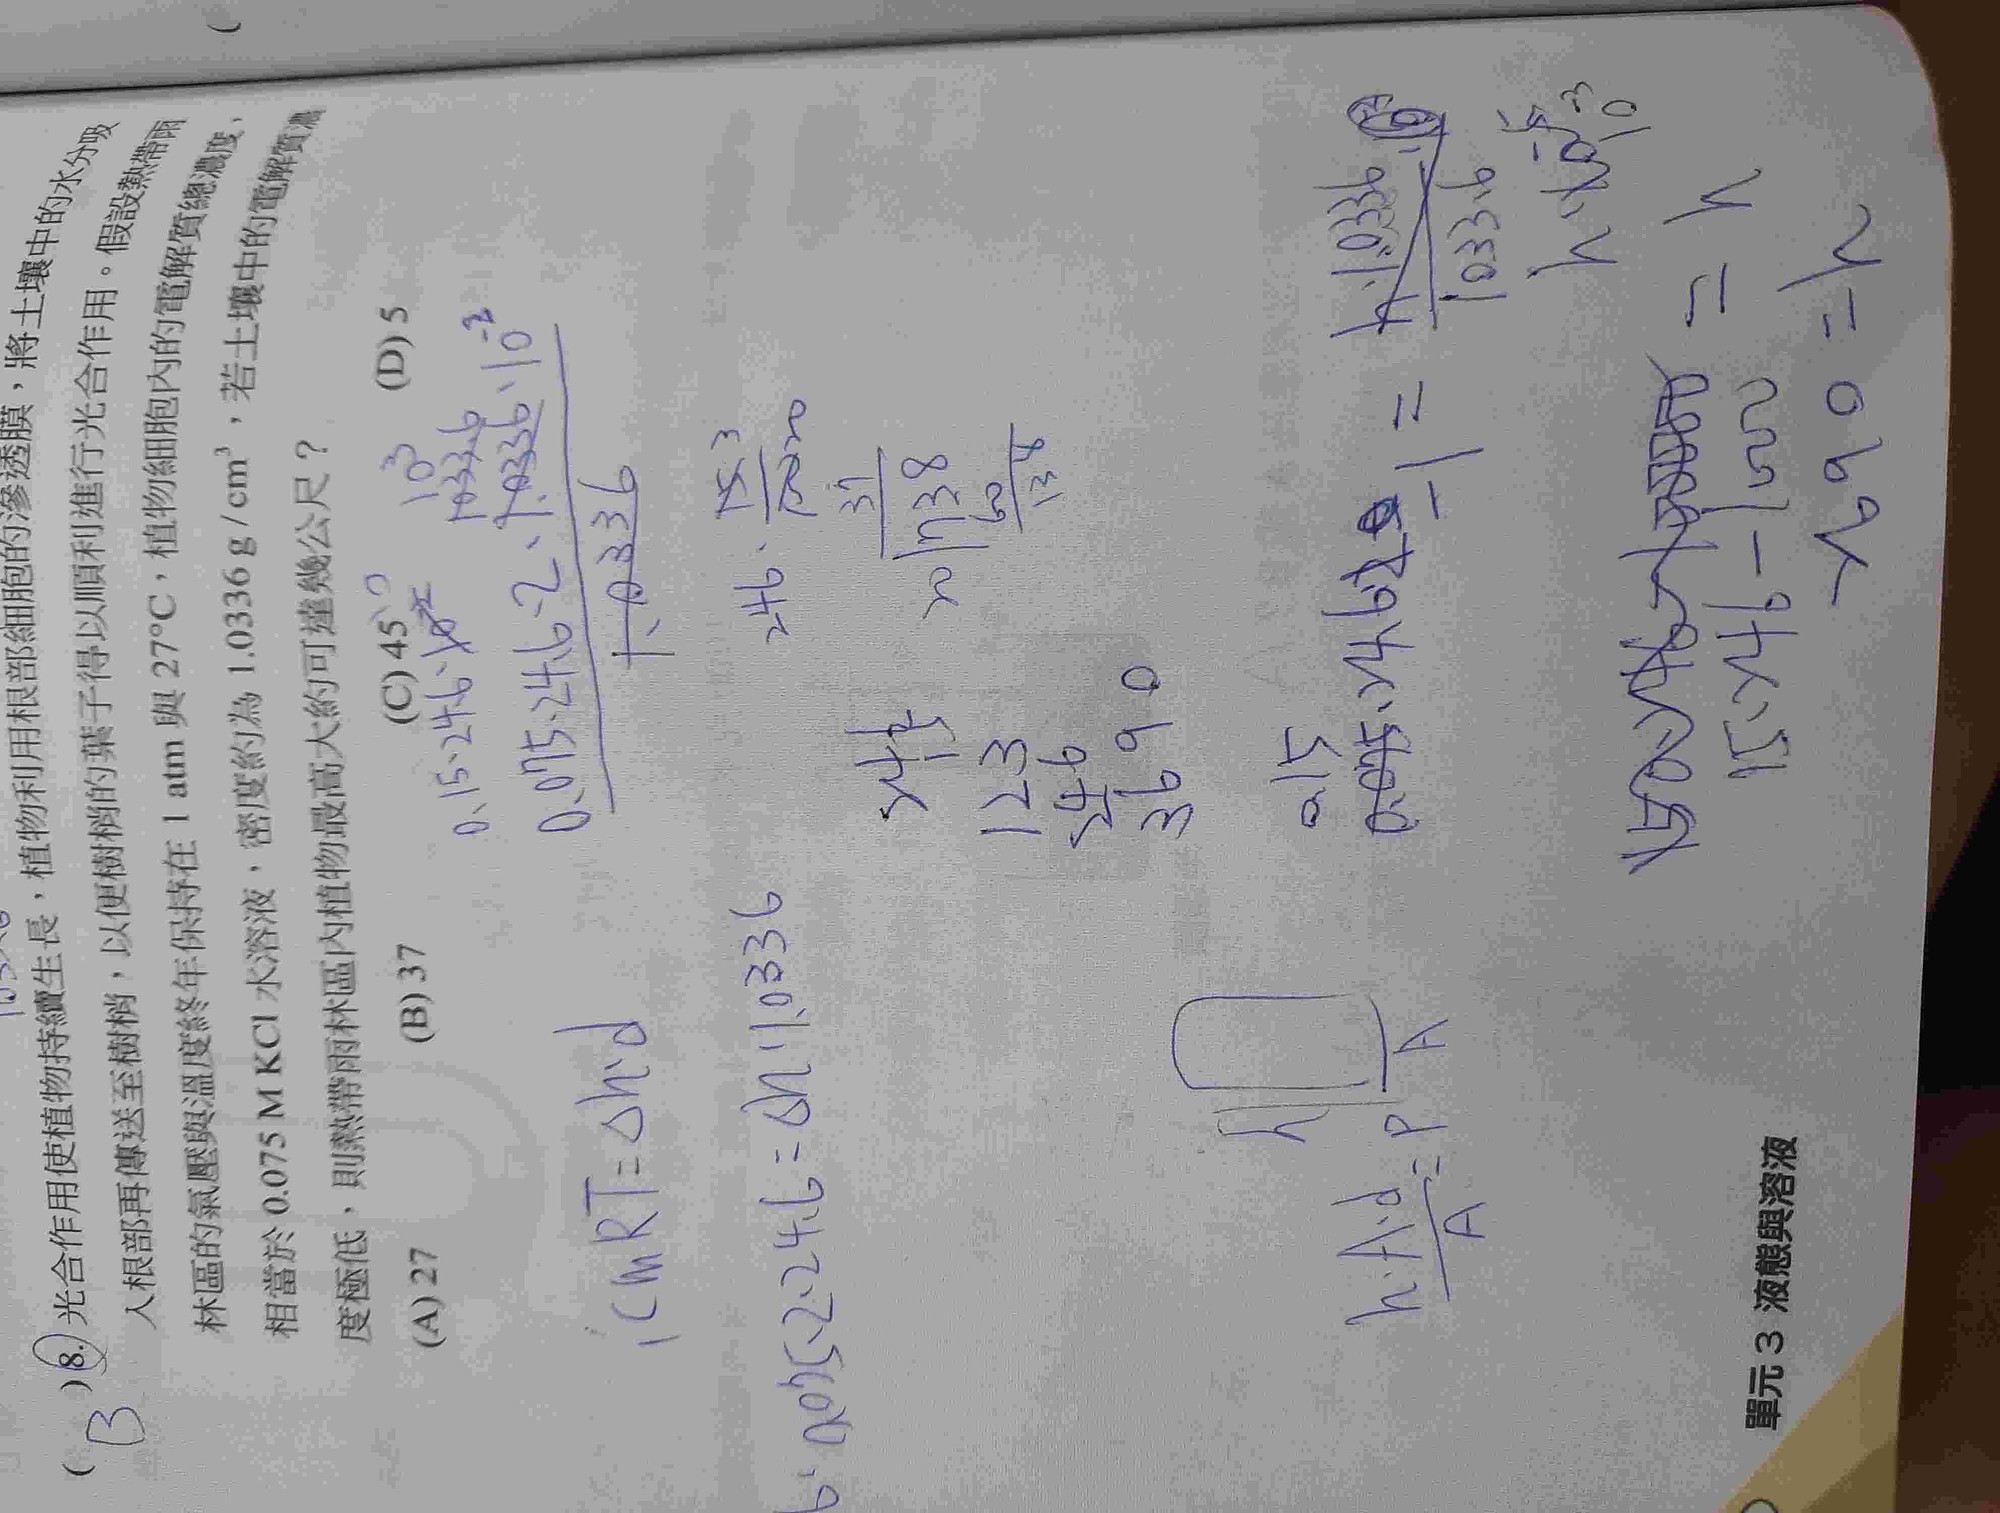 ( B )8. 光合作用使植物持續生長，植物利用根部細胞的滲透膜，將土壤中的水分吸
入根部再傳送至樹梢，以便樹梢的葉子得以順利進行光合作用。假設熱帶雨
林區的氣壓與溫度終年保持在 1 atm 與 27°C，植物細胞內的的電解質總濃度，
相當於 0.075 M KCl 水溶液，密度約為 1.0336 g / cm³，若土壤中的電解質濃
度極低，則熱帶雨林區內植物最高大約可達幾公尺？
(A) 27 (B) 37 (C) 45 (D) 5
iCMRT = Δh·d
0.075·2·24.6 = Δh·1.0336
0.15·24.6
10³
1033.6
0.075·24.6·2·1.0336·10⁻³
1.0336
246
15
123
246
3690
h·A·d
A
= P
A
h
0.15
1033.6
15·246 = h
3690 = h
單元 3 液態與溶液